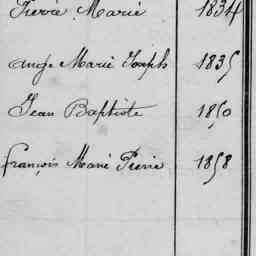 Pierre Marie 1834
Ange Marie Joseph 1835
Jean Baptiste 1850
François Marie Pierre 1858